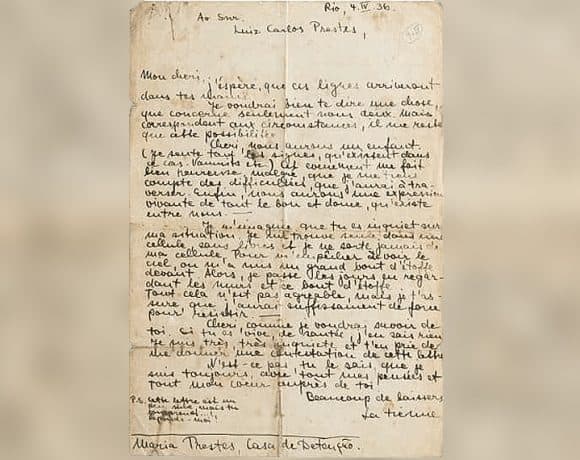 Rio, 4. IV. 36.
Ao Snr.
Luiz Carlos Prestes,
Mon cheri, j'espère, que ces lignes arriveront
dans tes mains.
Je voudrai bien te dire une chose,
que concerne seulement nous deux. Mais
correspondent aux circonstances, il me reste
que cette possibilitée.
Cheri, nous aurons un enfant.
(Je sente tout les signes, qu'existent dans
ce cas. Vomnits etc.) Cet evenement me fait
bien heureuse, malgré, que je me rends
compte des difficultées, que j'aurai à tra-
verser. Enfin, nous aurons une expression
vivante de tout le bon et doux, qu'existe
entre nous. —
Je m'imagine que tu es inquiet sur
ma situation. Je me trouve seule dans une
cellule, sans livres et je ne sorte jamais de
ma cellule. Pour m'empêcher à voir le
ciel, on m'a mis un grand bout d'étoffe
devant. Alors, je passe les jours en regar-
dant les murs et ce bout d'étoffe.
Tout cela n'est pas agreable, mais je t'as-
sure que j'aurai suffissament de force
pour resistir. —
Cheri, comme je voudrai savoir de
toi. Si tu es vive, de santée, j'en sais rien.
Je suis très, très inquiete et t'en prie de
me donner une contestation de cette lettre.
N'est-ce pas, tu le sais, que je
suis toujours, avec tout mes pensées et
tout mon coeur auprès de toi.
Beaucoup de baissers
P.s. cette lettre est un
peu mais tu
comprends...!
reponds-moi!
ta tienne
Maria Prestes, Casa de Detenção.